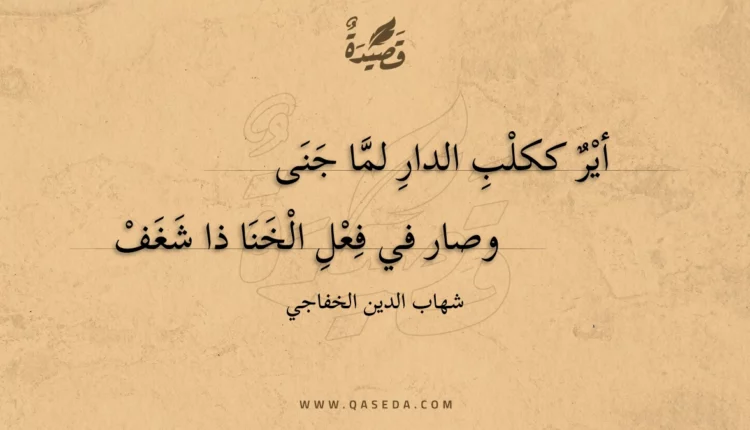 قَصِيدَةٌ
أيْرٌ ككلْبِ الدارِ لمَّا جَنَى
وصار في فِعْلِ الْخَنَا ذا شَغَفْ
شهاب الدين الخفاجي
WWW.QASEDA.COM